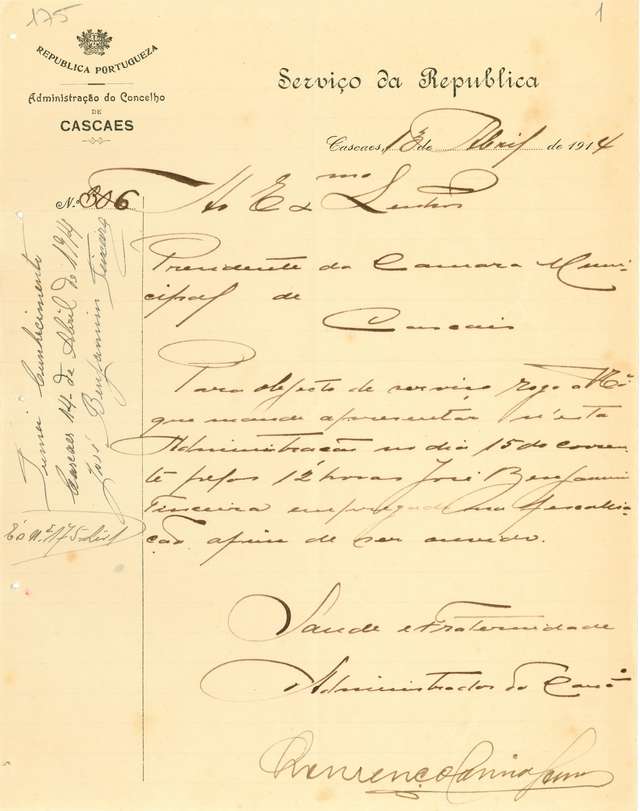 175
1
REPUBLICA PORTUGUEZA
Administração do Concelho
DE
CASCAES
Serviço da Republica
Cascaes, 13 de Abril de 1914
N.º 306
Ao Exmo Senhor
Presidente da Camara Muni
cipal de
Cascaes
Para objecto de serviço rogo a
que mande apresentar n'esta
Administração no dia 15 do corren
te pelas 12 horas José Benjamim
Teixeira empregado na fiscalisa
ção afim de ser ouvido.
Saude e Fraternidade
Administrador do
Lourenço
Tomei conhecimento
Cascaes 14 de Abril de 1914
José Benjamim Teixeira
nº 175